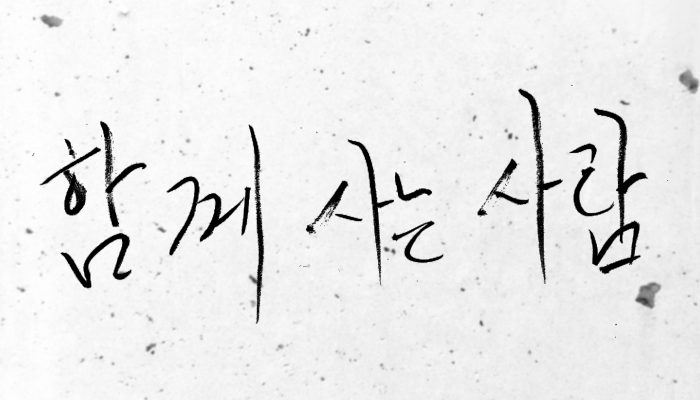 함께 사는 사람